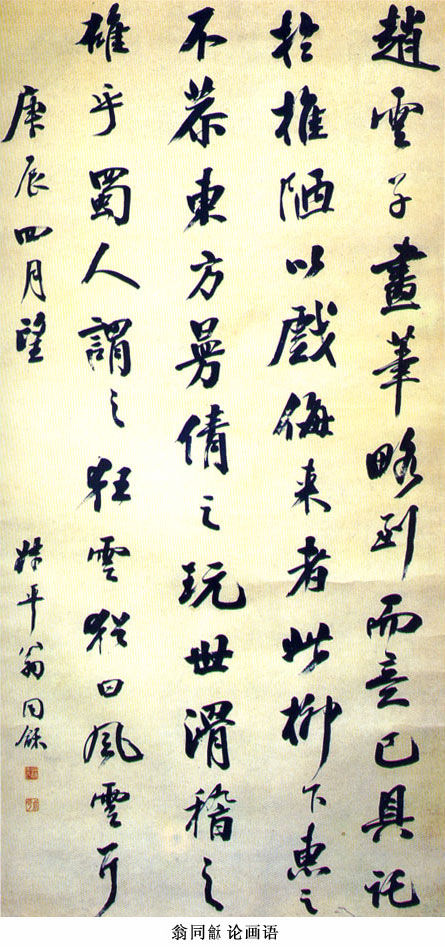 趙雲子畫筆略到而意已具託
於椎陋以戲侮来者此柳下惠之
不恭東方曼倩之玩世滑稽之
雄乎蜀人謂之狂雲猶曰風雲耳
庚辰四月望
叔平翁同龢
翁同龢 论画语